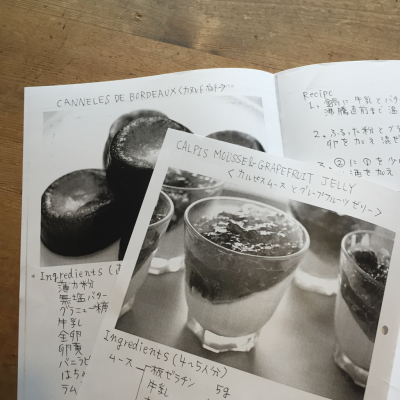 CANNELES DE BORDEAUX <カヌレド ボルドー>
Recipe
1. 鍋に牛乳とバタ
沸騰直前まで温
2. ふるった粉とグラ
卵を加え混ぜ
3. ②に①を少し
酒を加え
*Ingredients (直
薄力粉
無塩バター
グラニュー糖
牛乳
全卵
卵黄
バニラビ
はち
ラム
CALPIS MOUSSE & GRAPEFRUIT JELLY
<カルピスムースとグレープフルーツゼリー>
Ingredients (4~5人分)
ムース 板ゼラチン 5g
牛乳